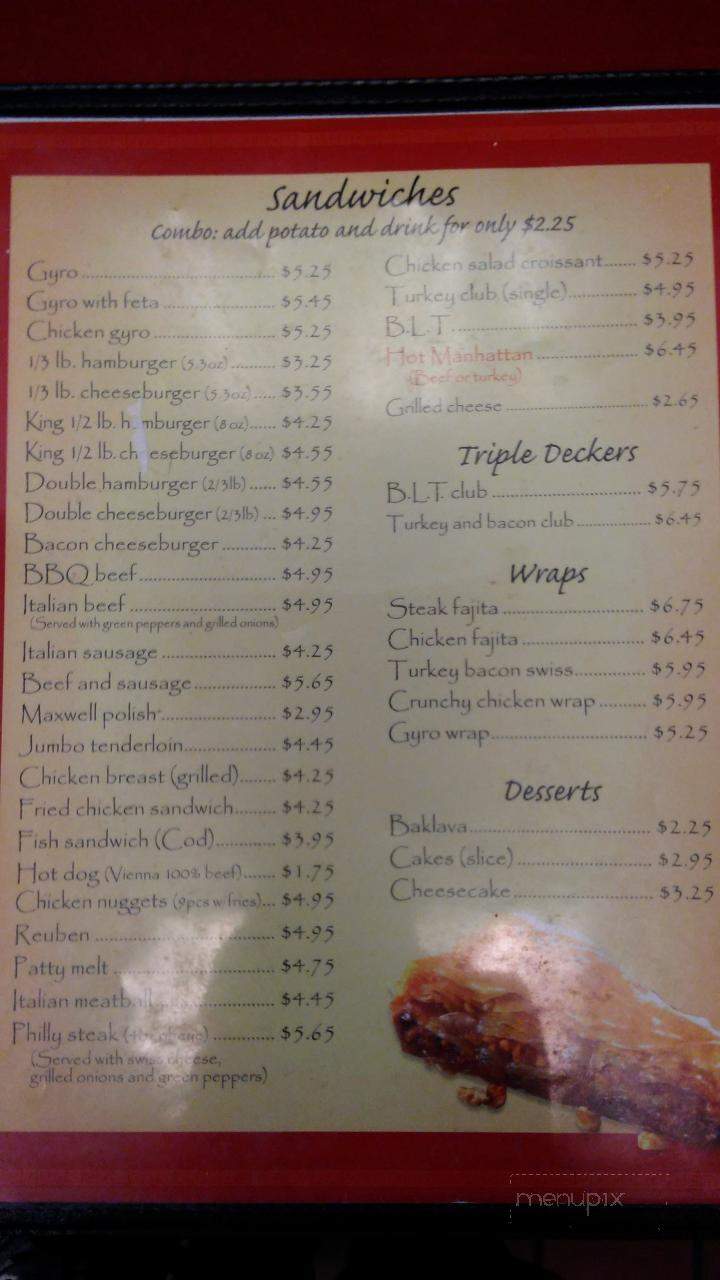 Sandwiches
Combo: add potato and drink for only $2.25
Gyro $5.25
Gyro with feta $5.45
Chicken gyro $5.25
1/3 lb. hamburger (5.3oz) $3.25
1/3 lb. cheeseburger (5.3oz) $3.55
King 1/2 lb. hamburger (8oz) $4.25
King 1/2 lb. cheeseburger (8oz) $4.55
Double hamburger (2/3lb) $4.55
Double cheeseburger (2/3lb) $4.95
Bacon cheeseburger $4.25
BBQ beef $4.95
Italian beef $4.95
(Served with green peppers and grilled onions)
Italian sausage $4.25
Beef and sausage $5.65
Maxwell polish $2.95
Jumbo tenderloin $4.45
Chicken breast (grilled) $4.25
Fried chicken sandwich $4.25
Fish sandwich (Cod) $3.95
Hot dog (Vienna 100% beef) $1.75
Chicken nuggets (9pcs w fries) $4.95
Reuben $4.95
Patty melt $4.75
Italian meatball $4.45
Philly steak $5.65
(Served with swiss cheese,
grilled onions and green peppers)
Chicken salad croissant $5.25
Turkey club (single) $4.95
B.L.T. $3.95
Hot Manhattan $6.45
(Beef or turkey)
Grilled cheese $2.65
Triple Deckers
B.L.T. club $5.75
Turkey and bacon club $6.45
Wraps
Steak fajita $6.75
Chicken fajita $6.45
Turkey bacon swiss $5.95
Crunchy chicken wrap $5.95
Gyro wrap $5.25
Desserts
Baklava $2.25
Cakes (slice) $2.95
Cheesecake $3.25
menupix